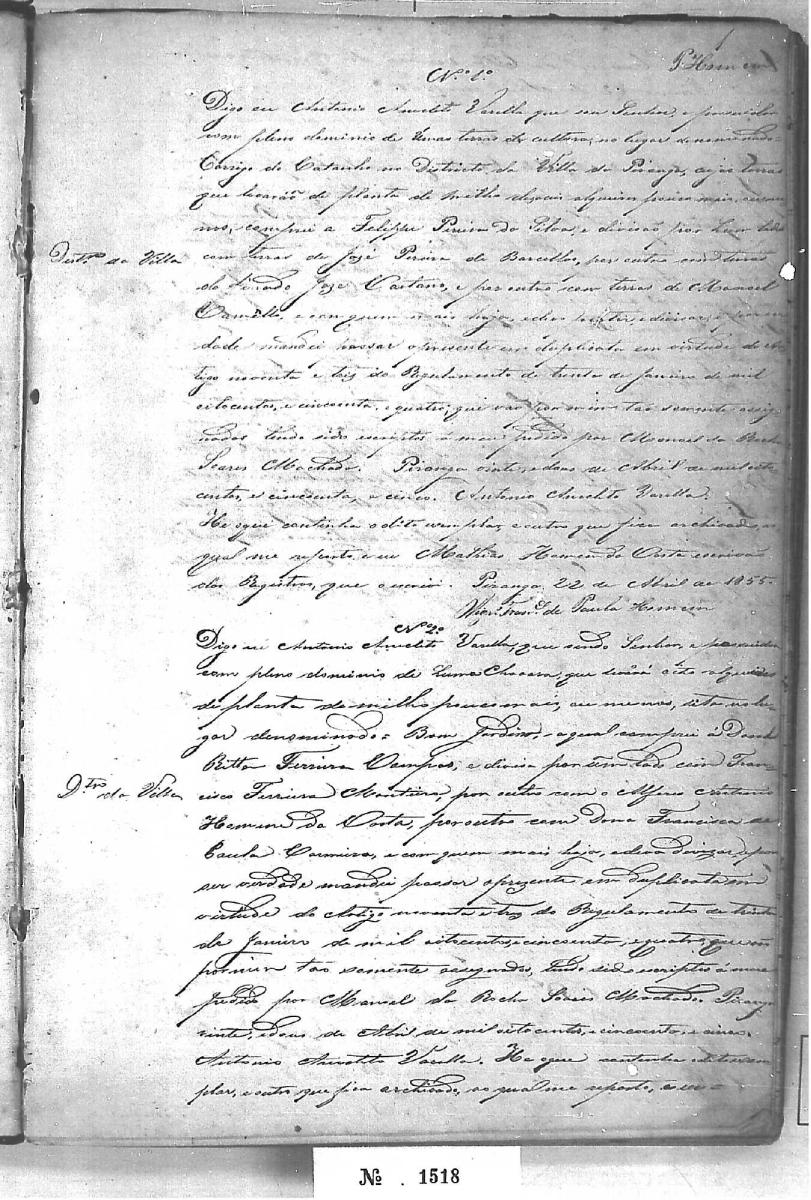 1
PHomem
Nº 1º
Digo eu Antonio Anacleto Varella que sou Senhor, e possuidor
com pleno dominio de humas terras de cultura, no lugar denominado =
Corrigo do Catanho no Districto da Villa da Piranga, cujas terras
que levarão de planta de milho alqueire pouco mais, ou me
nos, comprei a Felippe Pereira da Silva, e divisão por hum lado
Distº da Villa
com terras de José Pereira de Barcellos, por outro com terras
do finado José Caetano, e por outro com terras de Manoel
e com quem mais haja, e deva divisar, e por ser ver
dade mandei passar o presente em duplicata em virtude do Ar
tigo noventa e tres do Regulamento de trinta de Janeiro de mil
oitocentos, e cincoenta, e quatro, que vão por mim tão somente assig
nados tendo sido escriptos á meu pedido por Manoel da Rocha
Soares Machado. Piranga vinte, e dous de Abril de mil oito
centos, e cincoenta, e cinco. Antonio Anacleto Varella.
He o que continha o dito exemplar, e outro que fica archivado, ao
qual me reporto, e eu Mathias Homem da Costa escrivão
dos Registros, que o escrevi. Piranga 22 de Abril de 1855.
Vigrº Franº de Paula Homem
Nº 2º
Digo eu Antonio Anacleto Varella, que sendo Senhor, e possuidor
com pleno dominio de huma Chacara, que levará oito alqueires
de planta de milho pouco mais, ou menos, sita no lu
gar denominado = Bom Jardim, e a qual comprei á Dona
Ritta Ferreira Campos, e divisa por hum lado com Fran
Dtrº da Villa
cisco Ferreira Monteiro, por outro com o Alferes Antonio
Homem da Costa, por outro com Dona Francisca de
Paula Carneira, e com quem mais haja, e deva divizar, e por
ser verdade mandei passar o prezente em duplicata em
virtude do Artigo noventa e tres do Regulamento de trinta
de Janeiro de mil oitocentos, e cincoenta, e quatro, que vão
por mim tão somente assignados, tendo sido escriptos á meu
pedido por Manoel da Rocha Soares Machado. Piranga
vinte, e dous de Abril de mil oitocentos, e cincoenta, e cinco.
Antonio Anacleto Varella. He o que continha o dito exem
plar, e outro que fica archivado, ao qual me reporto, e eu =
№ . 1518